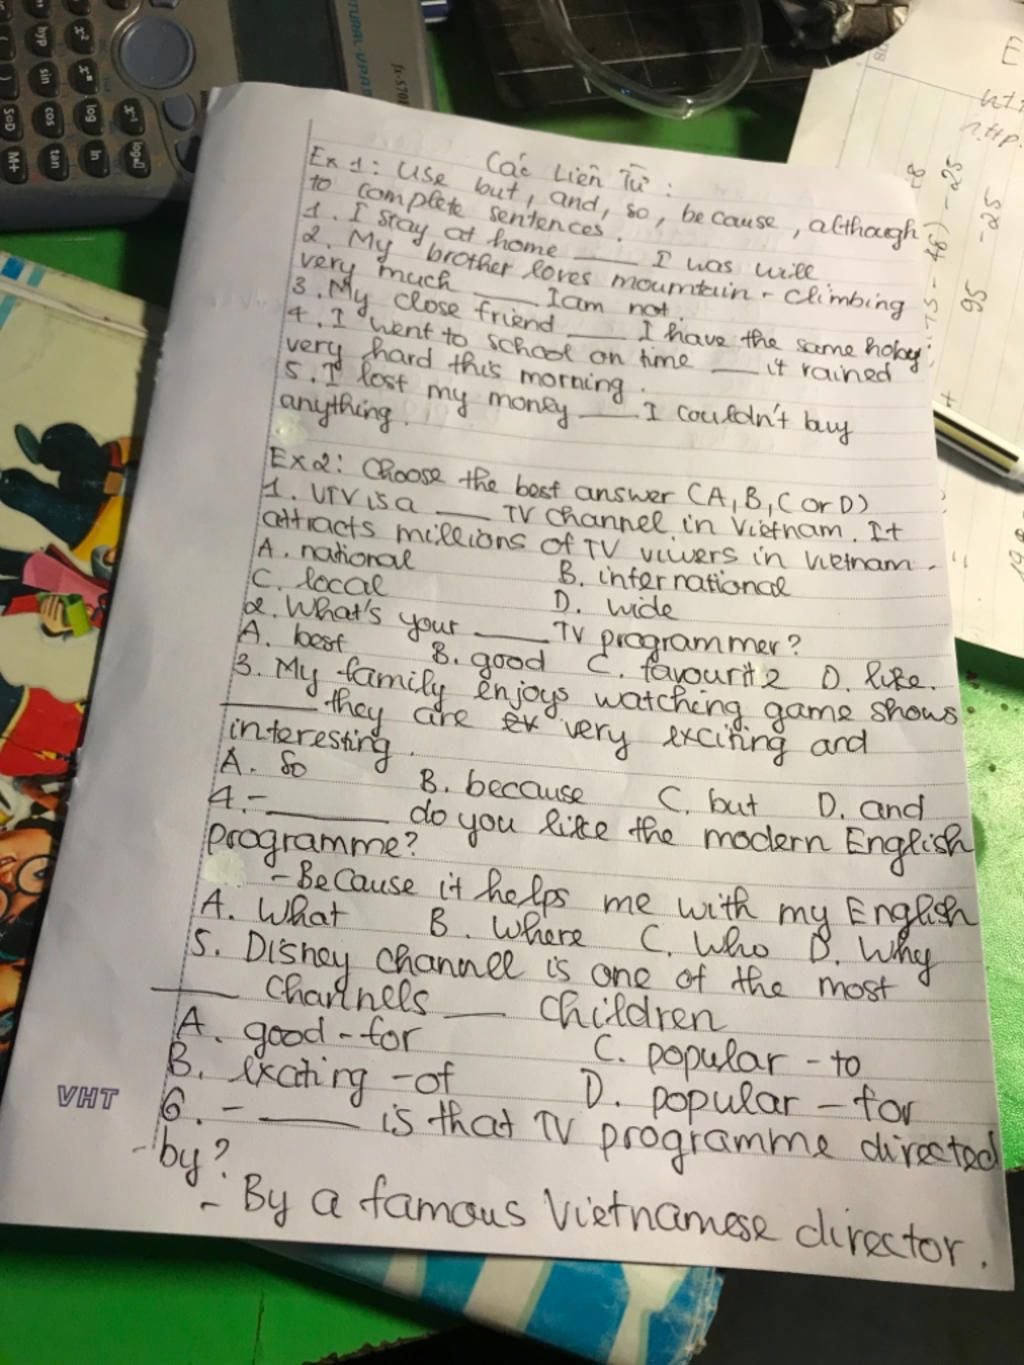 Các Liên Từ:
Ex 1: Use but, and, so, because, although
to complete sentences.
1. I stay at home ____ I was will
2. My brother loves mountain - climbing
very much ____ I am not.
3. My close friend ____ I have the same hobby
4. I went to school on time ____ it rained
very hard this morning.
5. I lost my money ____ I couldn't buy
anything.
Ex2: Choose the best answer (A, B, C or D)
1. VTV is a ____ TV channel in Vietnam. It
attracts millions of TV viwers in Vietnam.
A. national B. international
C. local D. wide
2. What's your ____ TV programmer?
A. best B. good C. favourite D. like.
3. My family enjoys watching game shows
____ they are ex very exciting and
interesting.
A. So B. because C. but D. and
4. - ____ do you like the modern English
programme?
- Because it helps me with my English
A. What B. Where C. Who D. Why
5. Disney channel is one of the most
____ channels ____ children
A. good - for C. popular - to
B. exciting - of D. popular - for
6. - ____ is that TV programme directed
by?
- By a famous Vietnamese director.
VHT
sin cos tan
hyp log ln
SoD M+
95 -25